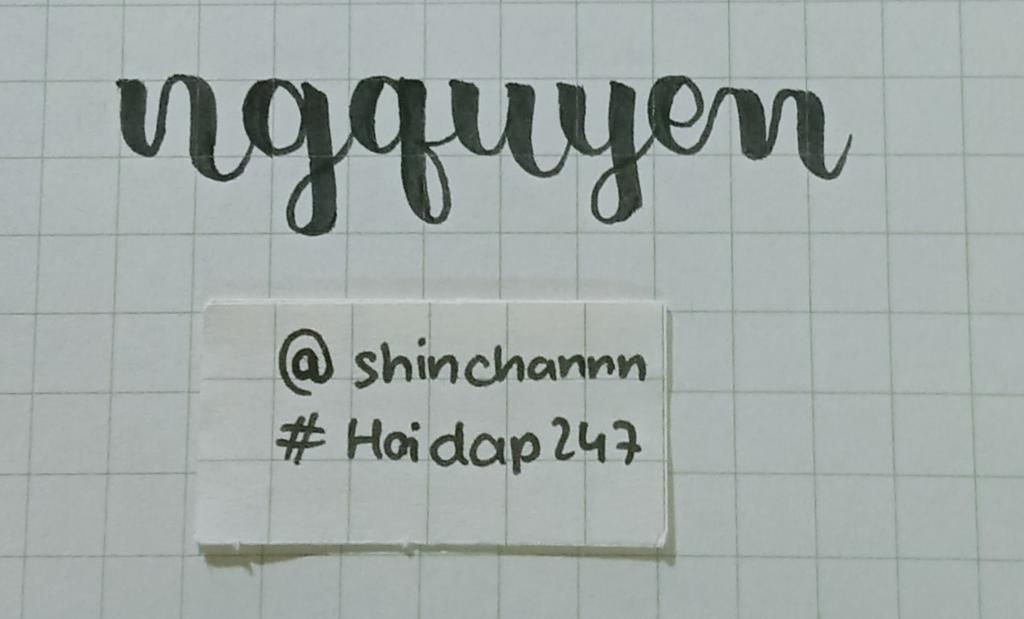 ngquyen
@ shinchannn
# Hoidap247